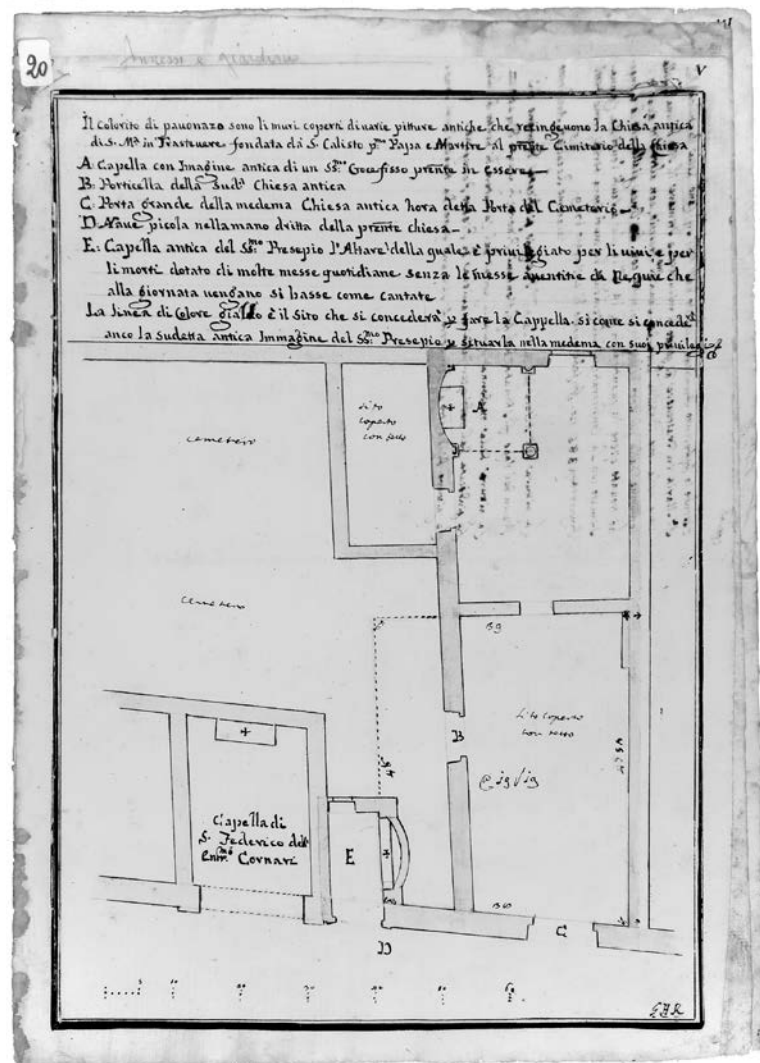 20
V
Il colorito di pauonazo sono li muri coperti di uarie pitture antiche che recingeuono la Chiesa antica
di S. Mᵃ in Trasteuere fondata da S. Calisto pᵐᵒ Papa e Martire al prẽnte Cimiterio della Chiesa
A: Capella con Imagine antica di un SSᵐᵒ Crocefisso prẽnte in essere
B: Porticella della Sudᵃ Chiesa antica
C: Porta grande della medema Chiesa antica hora detta Porta del Cemeterio
D: Naue picola nella mano dritta della prẽnte chiesa
E: Capella antica del SSᵐᵒ Presepio l'Altare della quale è priuilegiato per li uiui e per
li morti dotato di molte messe quotidiane senza le messe auentitie di che
alla giornata uengano si basse come cantate
La linea di Colore giallo è il Sito che si concederà fare la Cappella si come si concede
anco la sudetta antica Immagine del SSᵐᵒ Presepio situarla nella medema con suoi priuilegi
sito
coperto
con tetto
A
cemeterio
cemeterio
B
sito coperto
con tetto
Capella di
S. Federico dell
Cornari
E
D
C